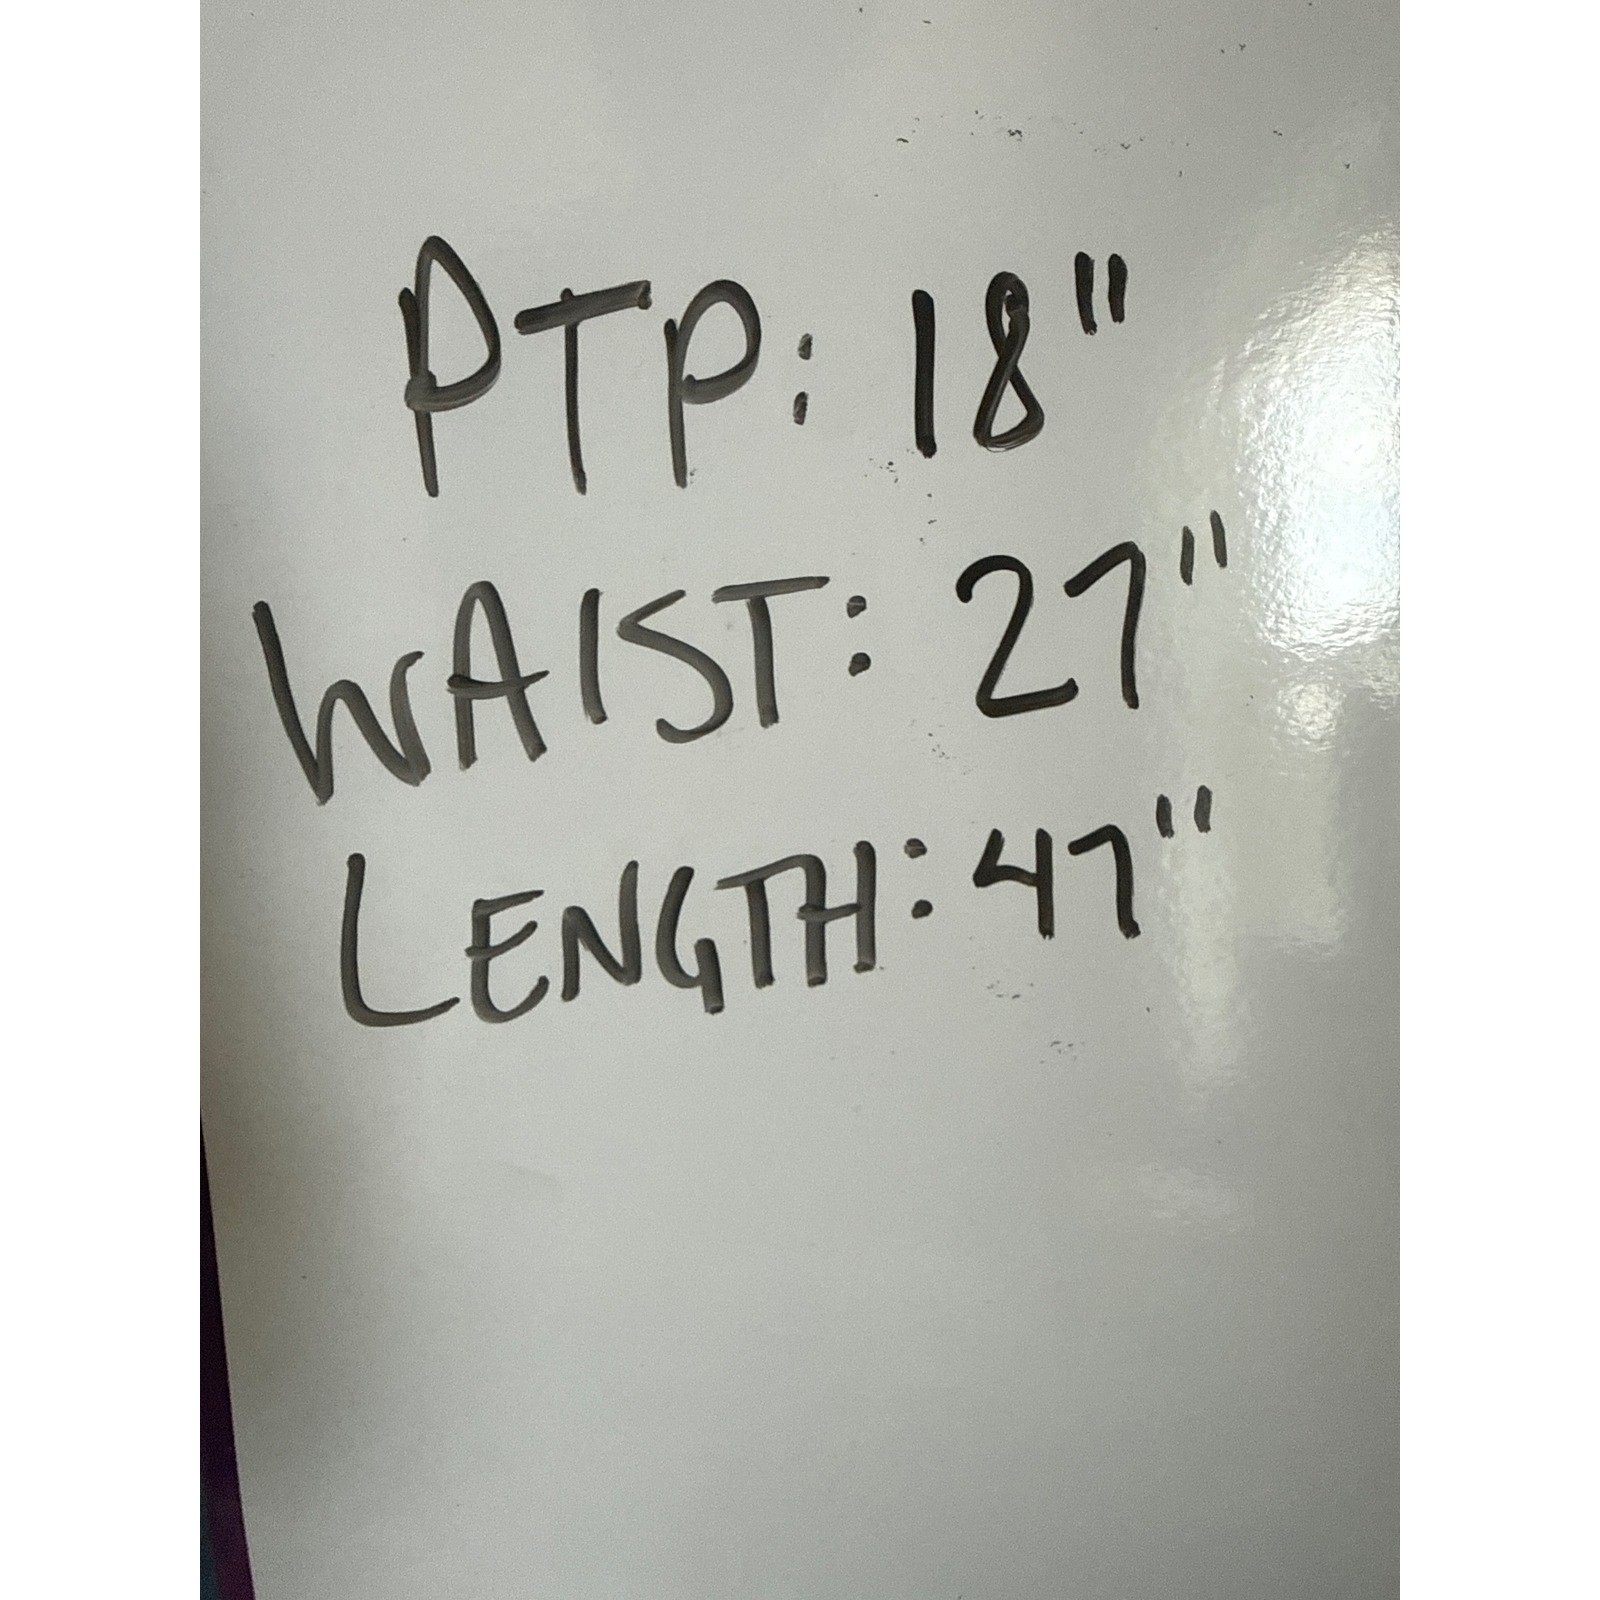 PTP: 18"
WAIST: 27"
LENGTH: 47"